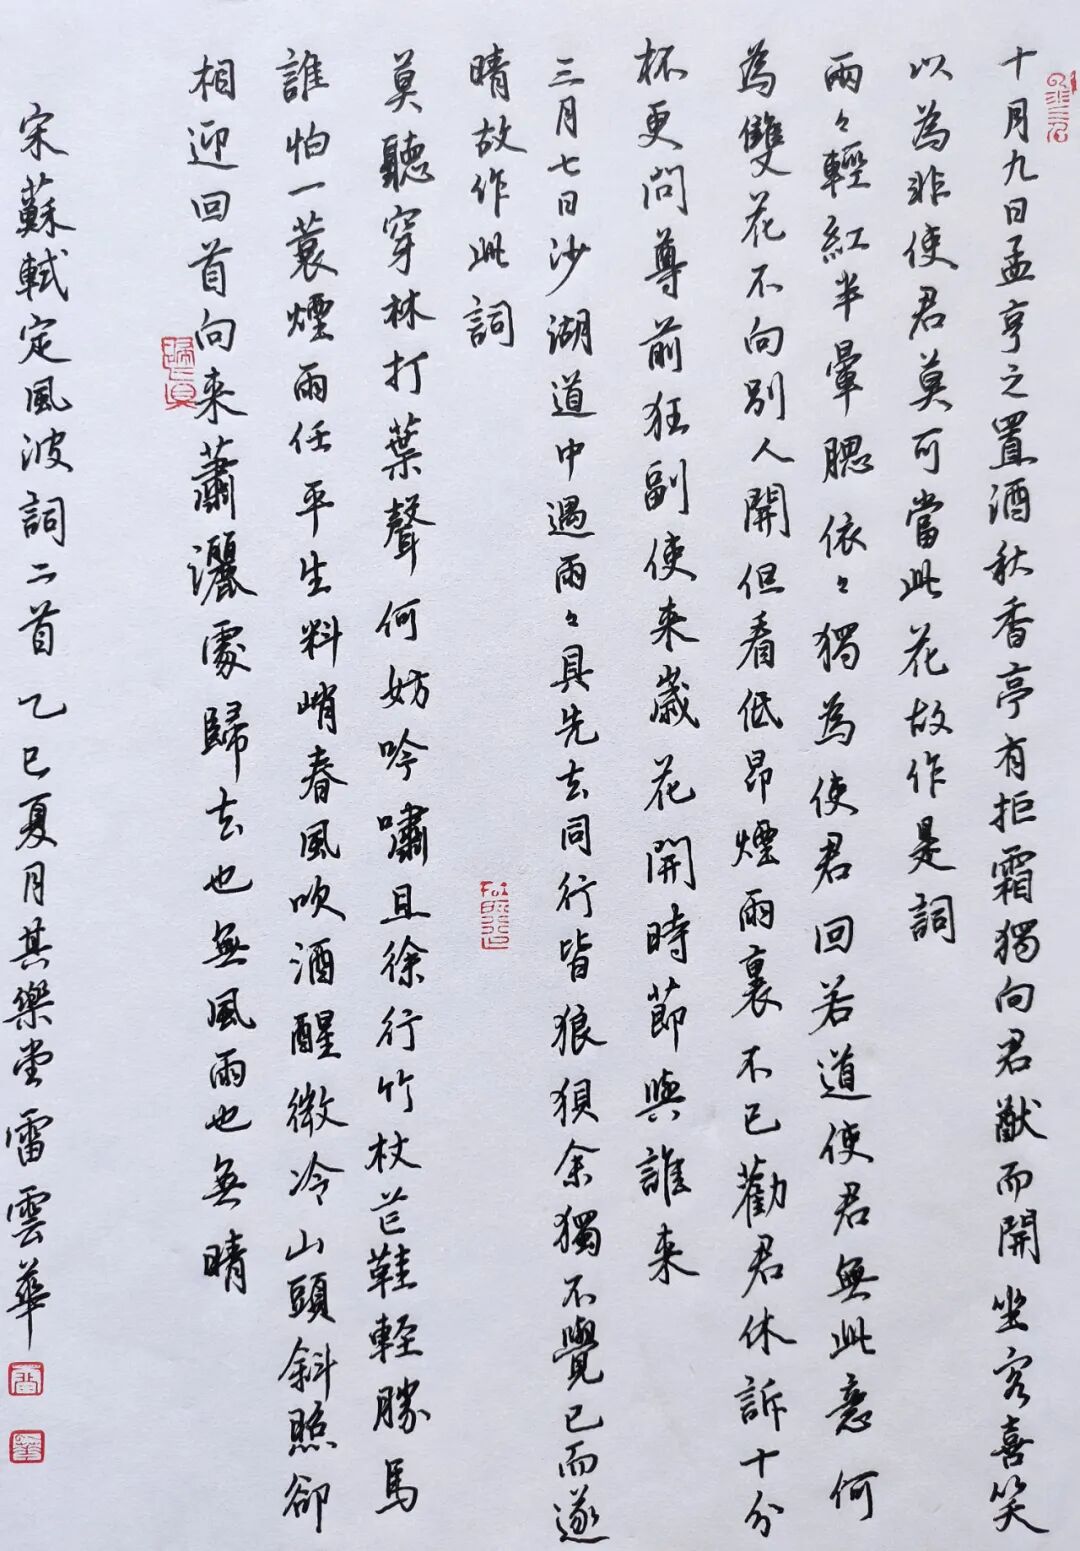 十月九日孟亨之置酒秋香亭有拒霜獨向君猷而開坐客喜笑
以為非使君莫可當此花故作是詞
兩々輕紅半暈腮依々獨為使君回若道使君無此意何
為雙花不向別人開但看低昂煙雨裏不已勸君休訴十分
杯更問尊前狂副使来歲花開時節與誰来
三月七日沙湖道中遇雨々具先去同行皆狼狽余獨不覺已而遂
晴故作此詞
莫聽穿林打葉聲何妨吟嘯且徐行竹杖芒鞋輕勝馬
誰怕一蓑煙雨任平生料峭春風吹酒醒微冷山頭斜照卻
相迎回首向来蕭灑處歸去也無風雨也無晴
宋蘇軾定風波詞二首乙巳夏月其樂堂雷雲華